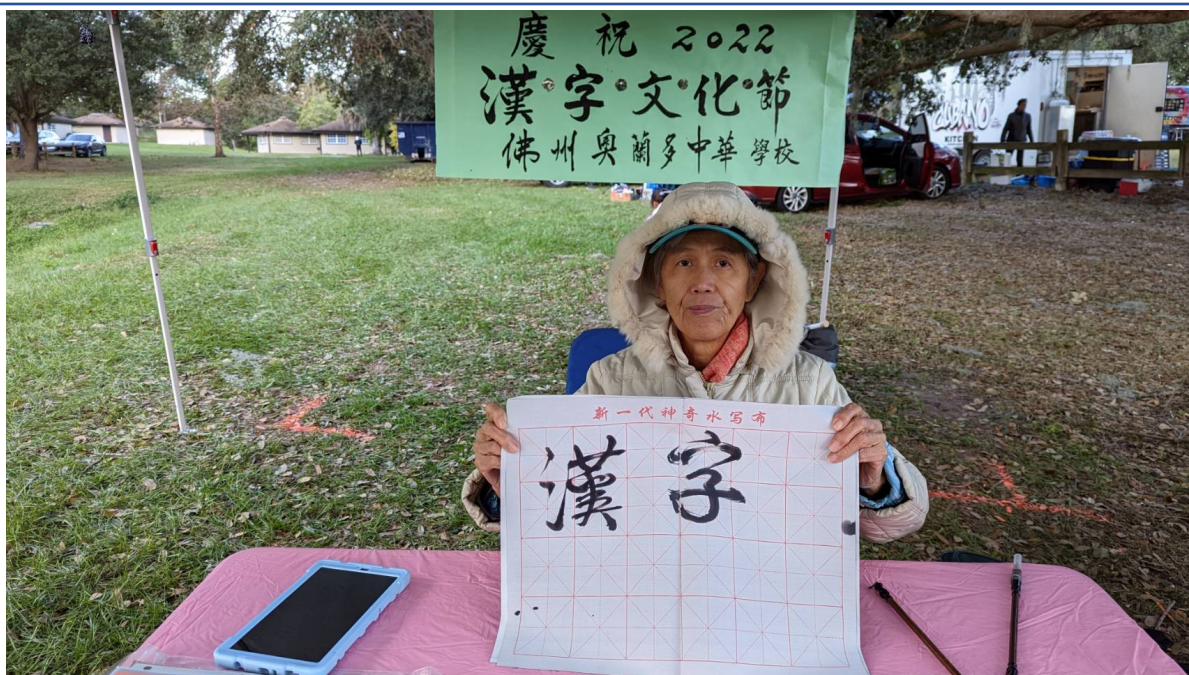 慶祝2022
漢·字·文·化·節
佛州奥蘭多中華學校
KITCHEN
新一代神奇水写布
漢字